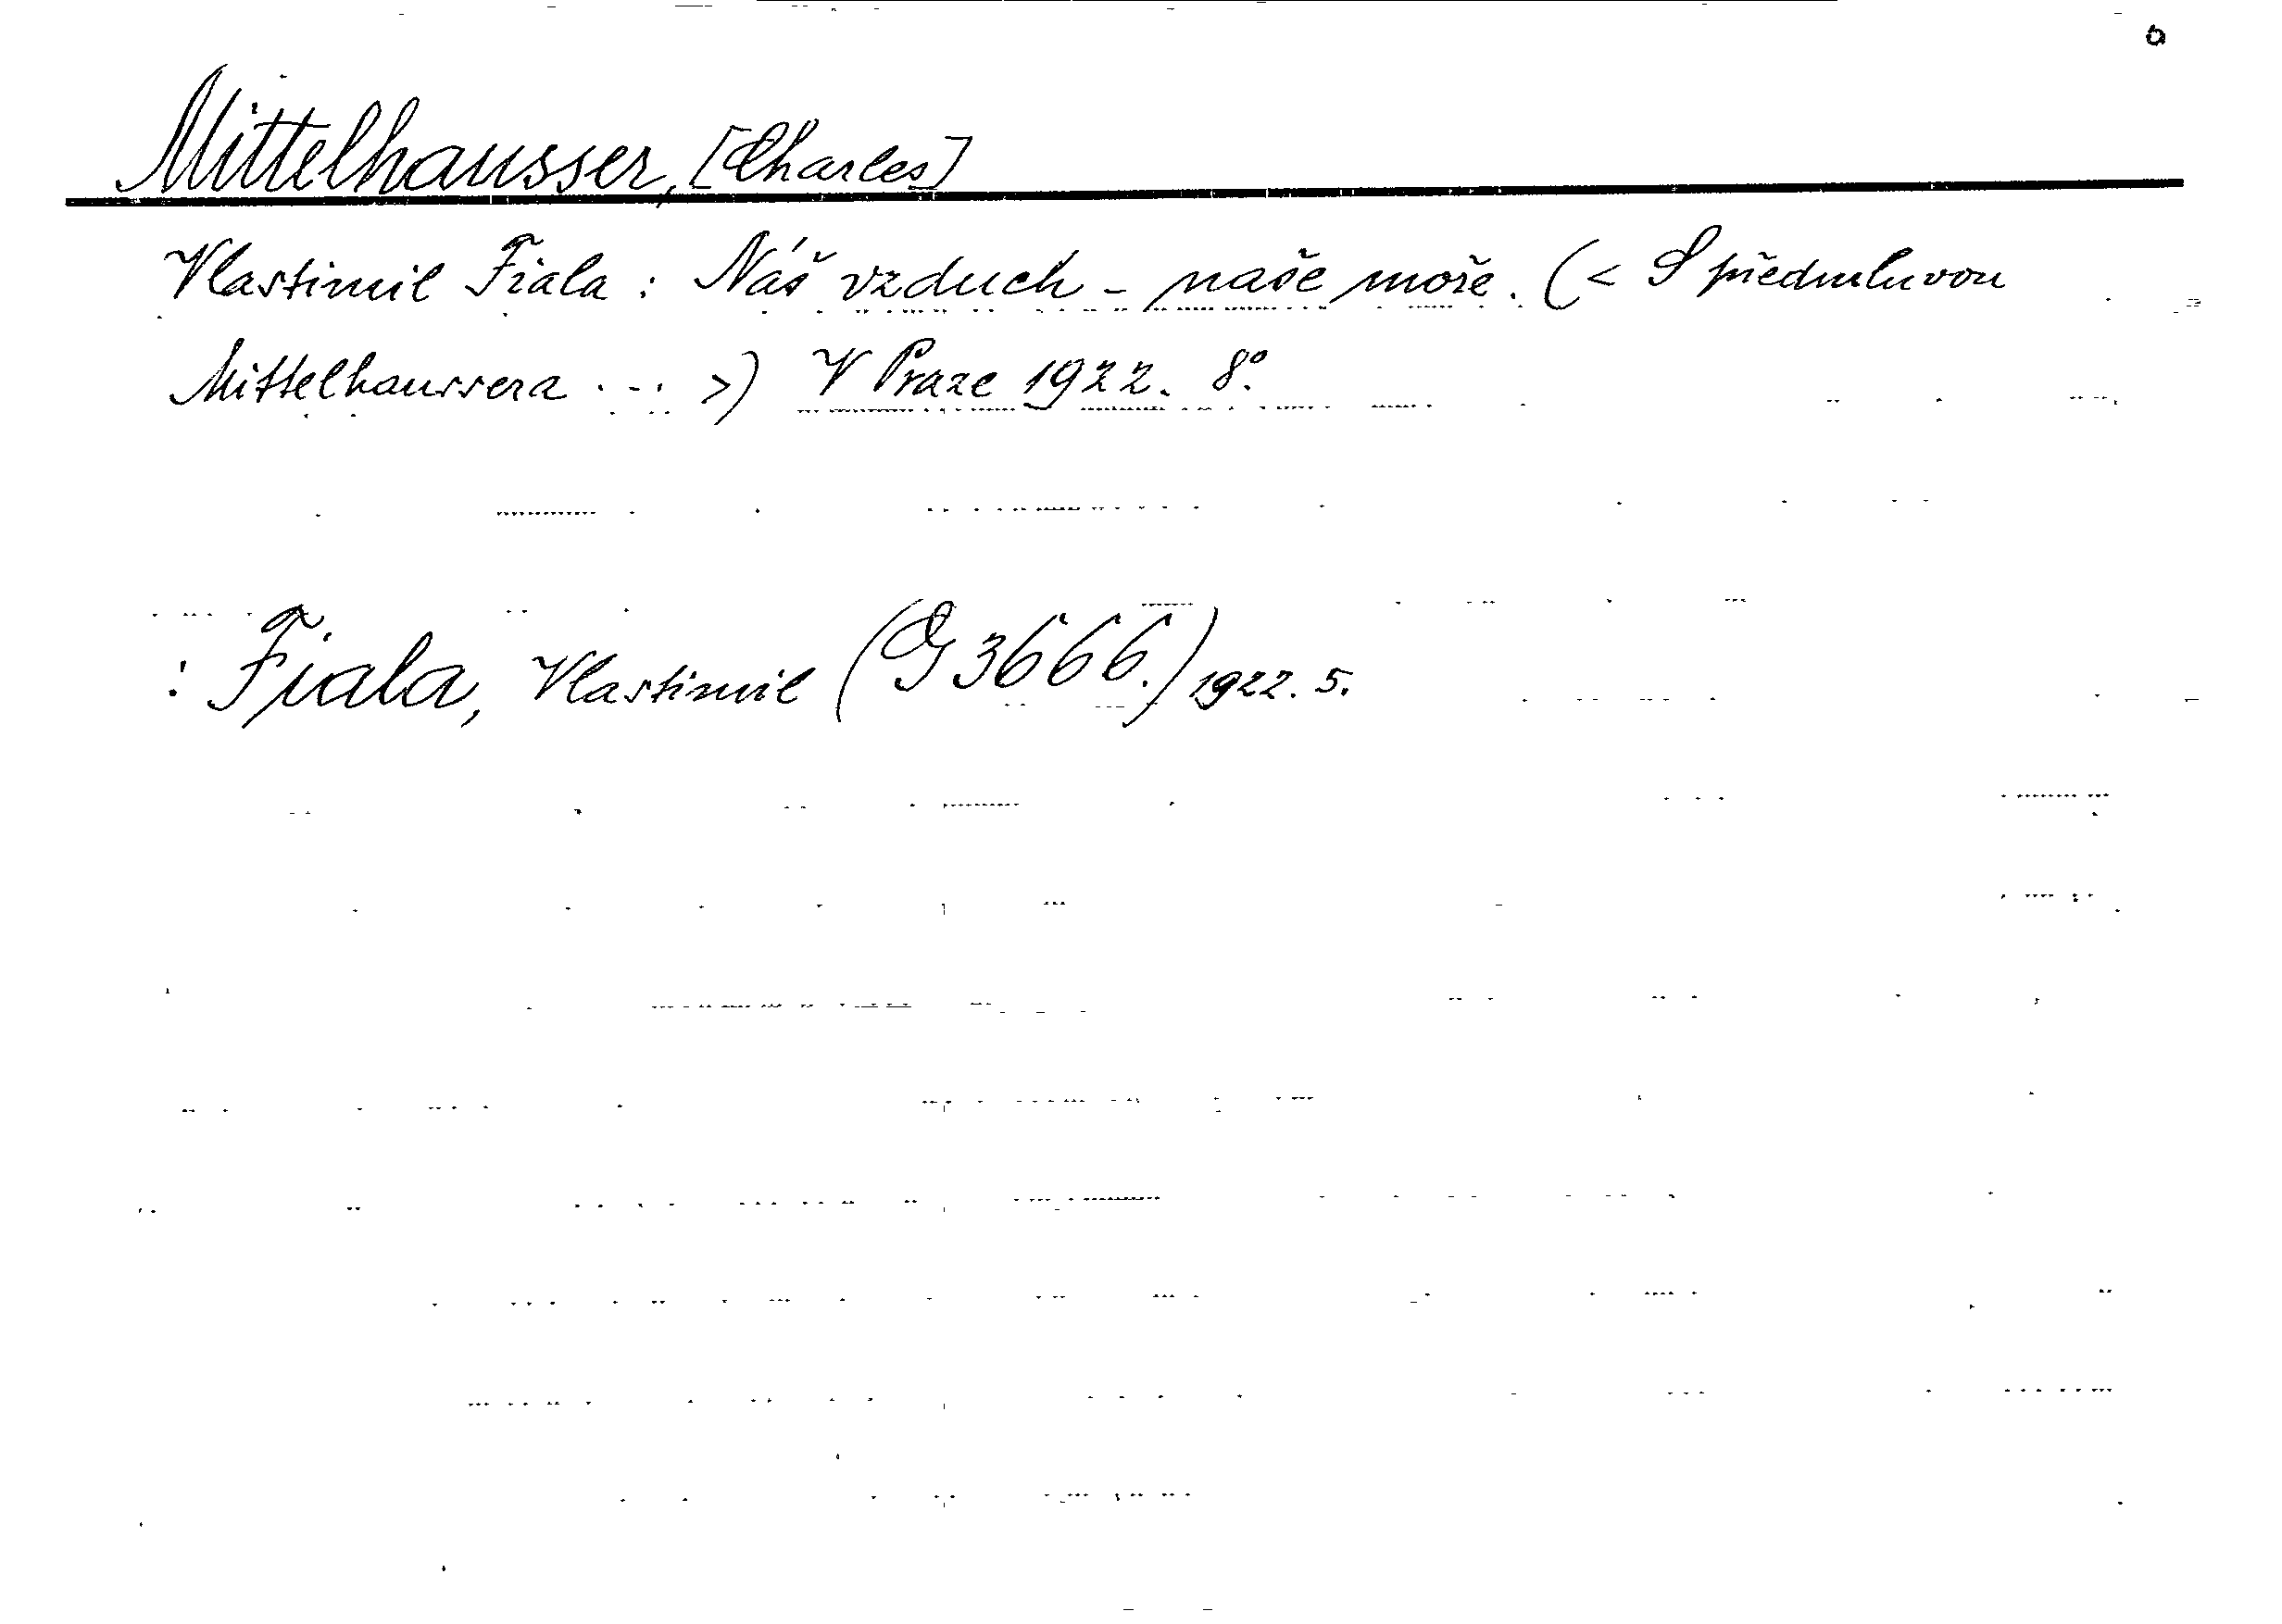 Mittelhausser, [Charles]
Vlastimil Fiala : Náš vzduch - naše moře. (< S předmluvou
Mittelhaussera ... >) V Praze 1922. 8°.
: Fiala, Vlastimil (G 3666.) 1922. 5.